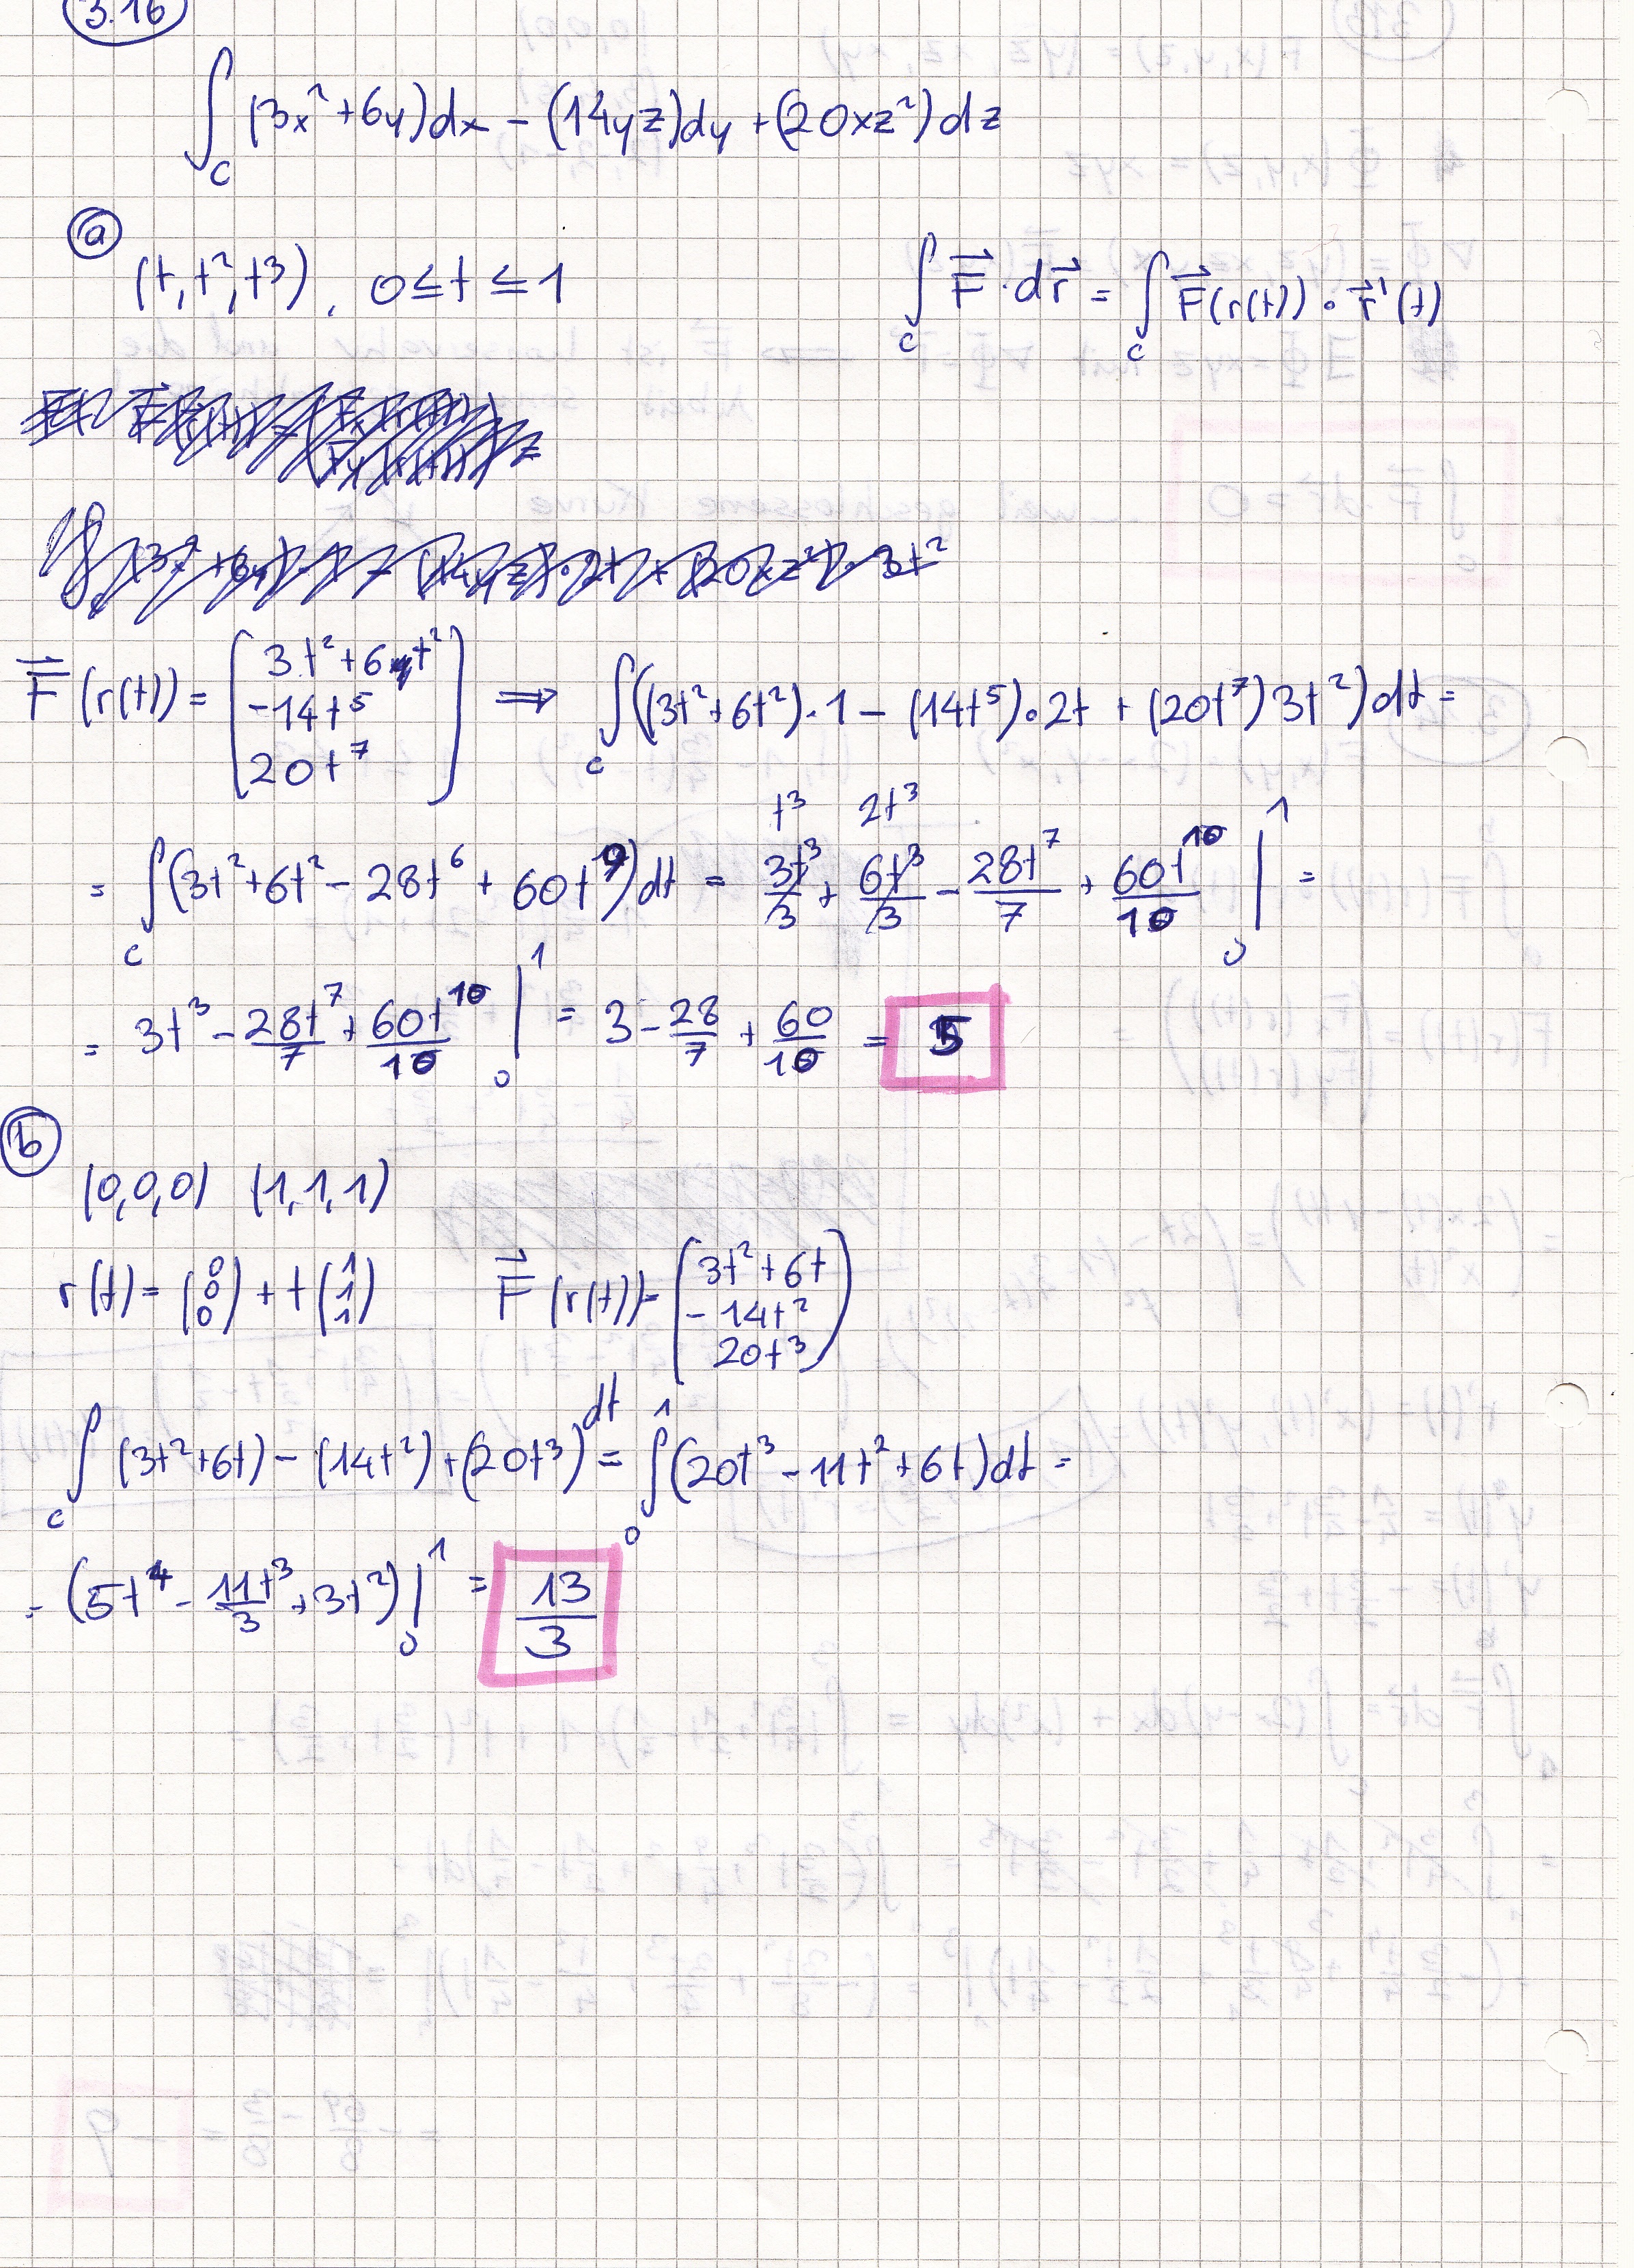 3.16
∫_C (3x²+6y)dx - (14yz)dy + (20xz²)dz
ⓐ
(t, t², t³), 0≤t≤1
∫_C F⃗·dr⃗ = ∫_C F⃗(r(t))·r⃗'(t)
F⃗(r(t)) = (3t²+6t², -14t⁵, 20t⁷) ⟹ ∫_C ((3t²+6t²)·1 - (14t⁵)·2t + (20t⁷)3t²)dt =
t³ 2t³
= ∫_C (3t²+6t² - 28t⁶ + 60t⁹)dt = 3t³/3 + 6t³/3 - 28t⁷/7 + 60t¹⁰/10 |₀¹ =
= 3t³ - 28t⁷/7 + 60t¹⁰/10 |₀¹ = 3 - 28/7 + 60/10 = 5
ⓑ
(0,0,0) (1,1,1)
r(t) = (0, 0, 0) + t(1, 1, 1) F⃗(r(t)) = (3t²+6t, -14t², 20t³)
∫_C (3t²+6t) - (14t²) + (20t³) dt = ∫₀¹ (20t³ - 11t² + 6t)dt =
= (5t⁴ - 11t³/3 + 3t²)|₀¹ = 13/3